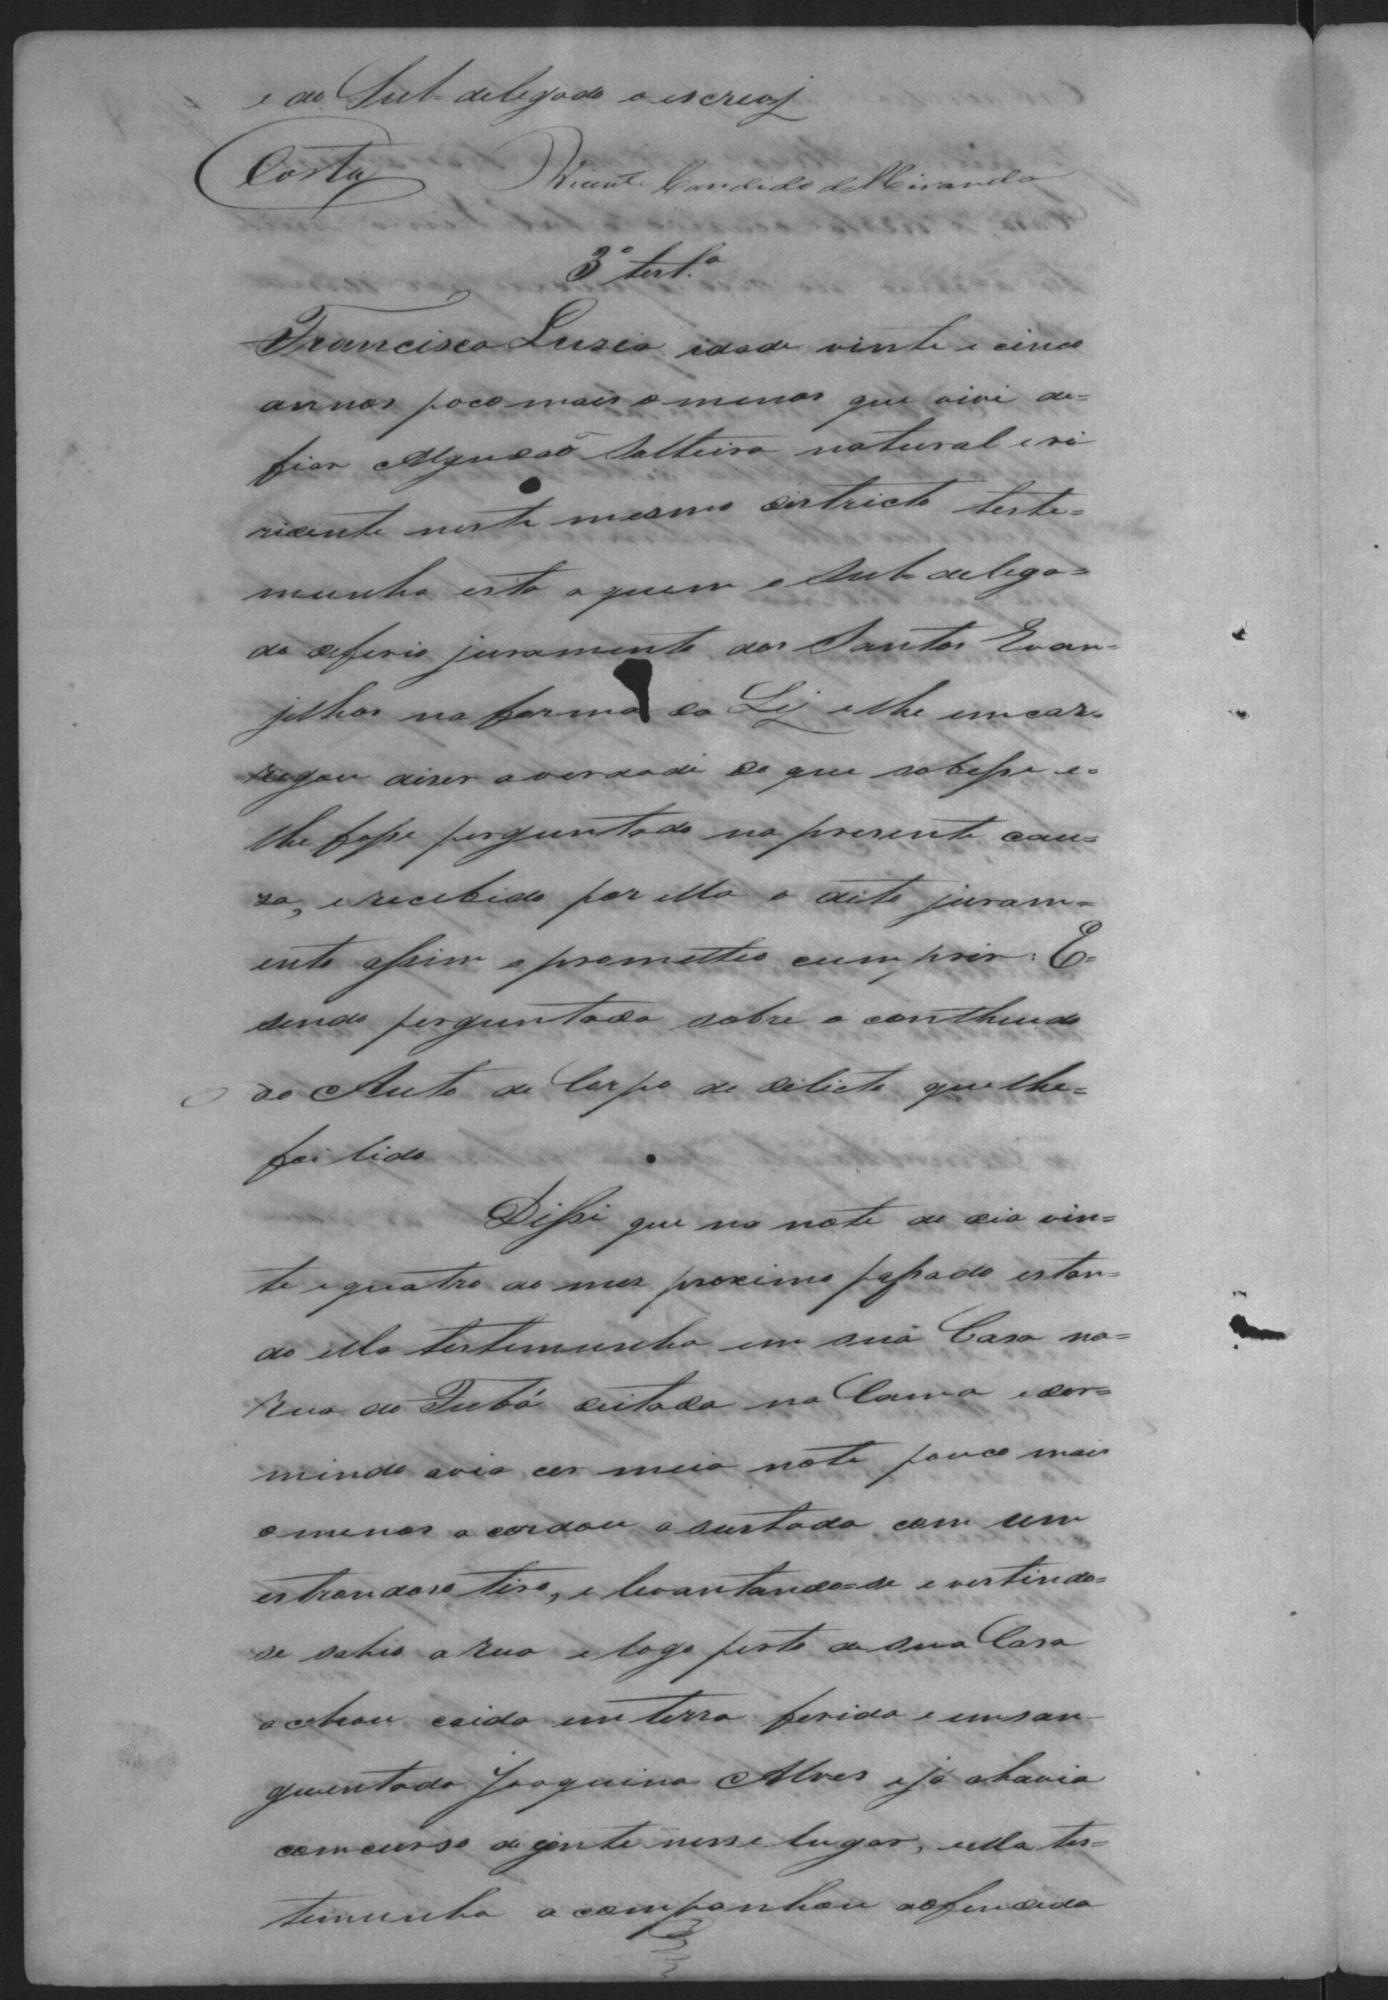 e do Sub-delegado o escrevj
Costa Vicente Candido de Miranda
3ª test.ª
Francisca Luzia idade vinte e cinco
annos poco mais o menos que vivi de=
fiar Algudaõ Solteira natural e ri
zidente neste mesmo districto teste=
munha esta a quem o Sub delega=
do deferio juramento dos Santos Evan=
jelhos na forma da Lej e lhe emcar=
regou diser a verdade do que sobesse e=
lhe fosse perguntado na presente cau=
za, e recebido por ella o dito juram=
ento assim o prometteo cumprir: E=
sendo perguntada sobre o conthiudo
do Auto de Corpo de delicto que lhe=
foi lido
Dissi que na note de dia vin=
te e quatro do mes proximo passado estan=
do ella testemunha em sua Casa na=
Rua do Tubá deitada na Cama e dor=
mindo avia ser meia note pouco mais
o menos acordou asustada com um
estrondoso tiro, e levantando=se e vestindo=
se sahio a Rua e logo perto de sua Casa
achou caida em terra ferida e emsan-
guentada Joaquina Alves e já ahavia
comcurso de gente nesse lugar, e ella tes=
temunha acompanhou aofendida